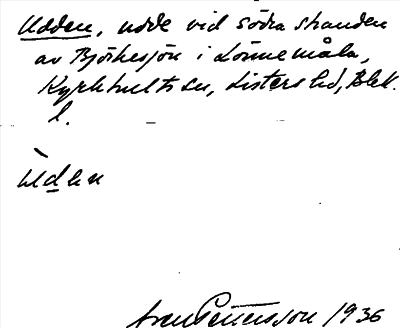 Udden, udde vid södra stranden
av Björkesjön i Lönnemåla,
Kyrkhults sn, Listers hd, Blek.
l.
ùden
Sven Pettersson 1936